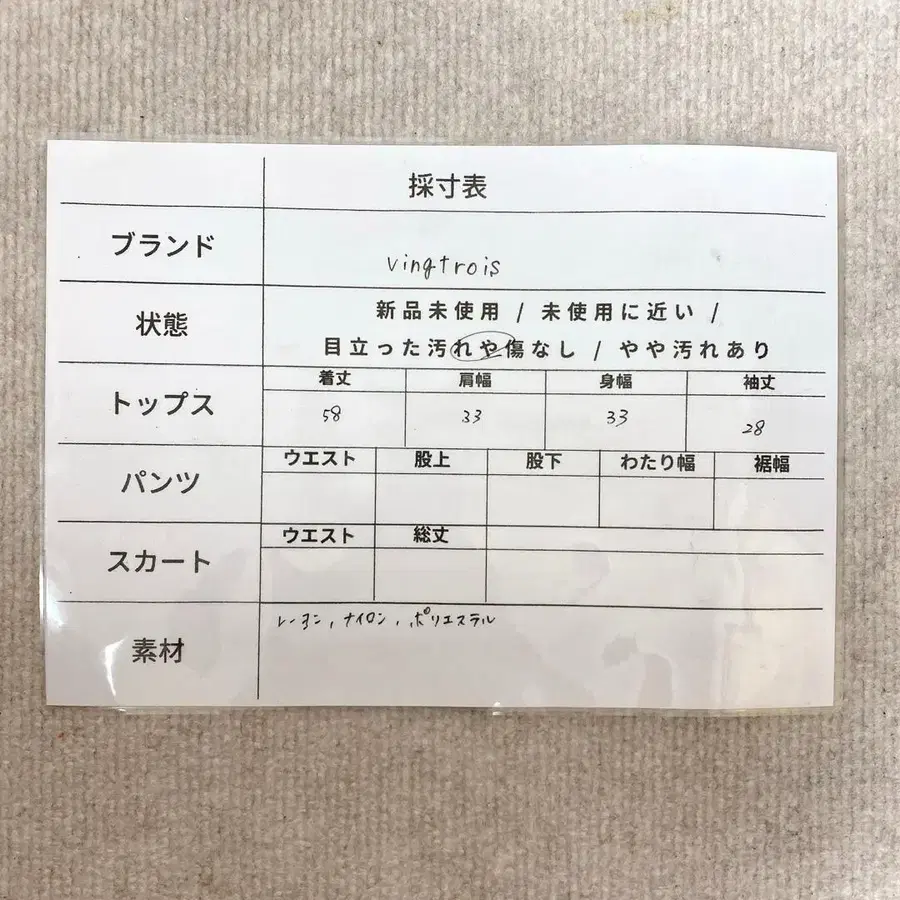 採寸表
ブランド
vingtrois
状態
新品未使用 / 未使用に近い /
目立った汚れや傷なし / やや汚れあり
トップス
着丈 肩幅 身幅 袖丈
58 33 33 28
パンツ
ウエスト 股上 股下 わたり幅 裾幅
スカート
ウエスト 総丈
素材
レーヨン, ナイロン, ポリエステル